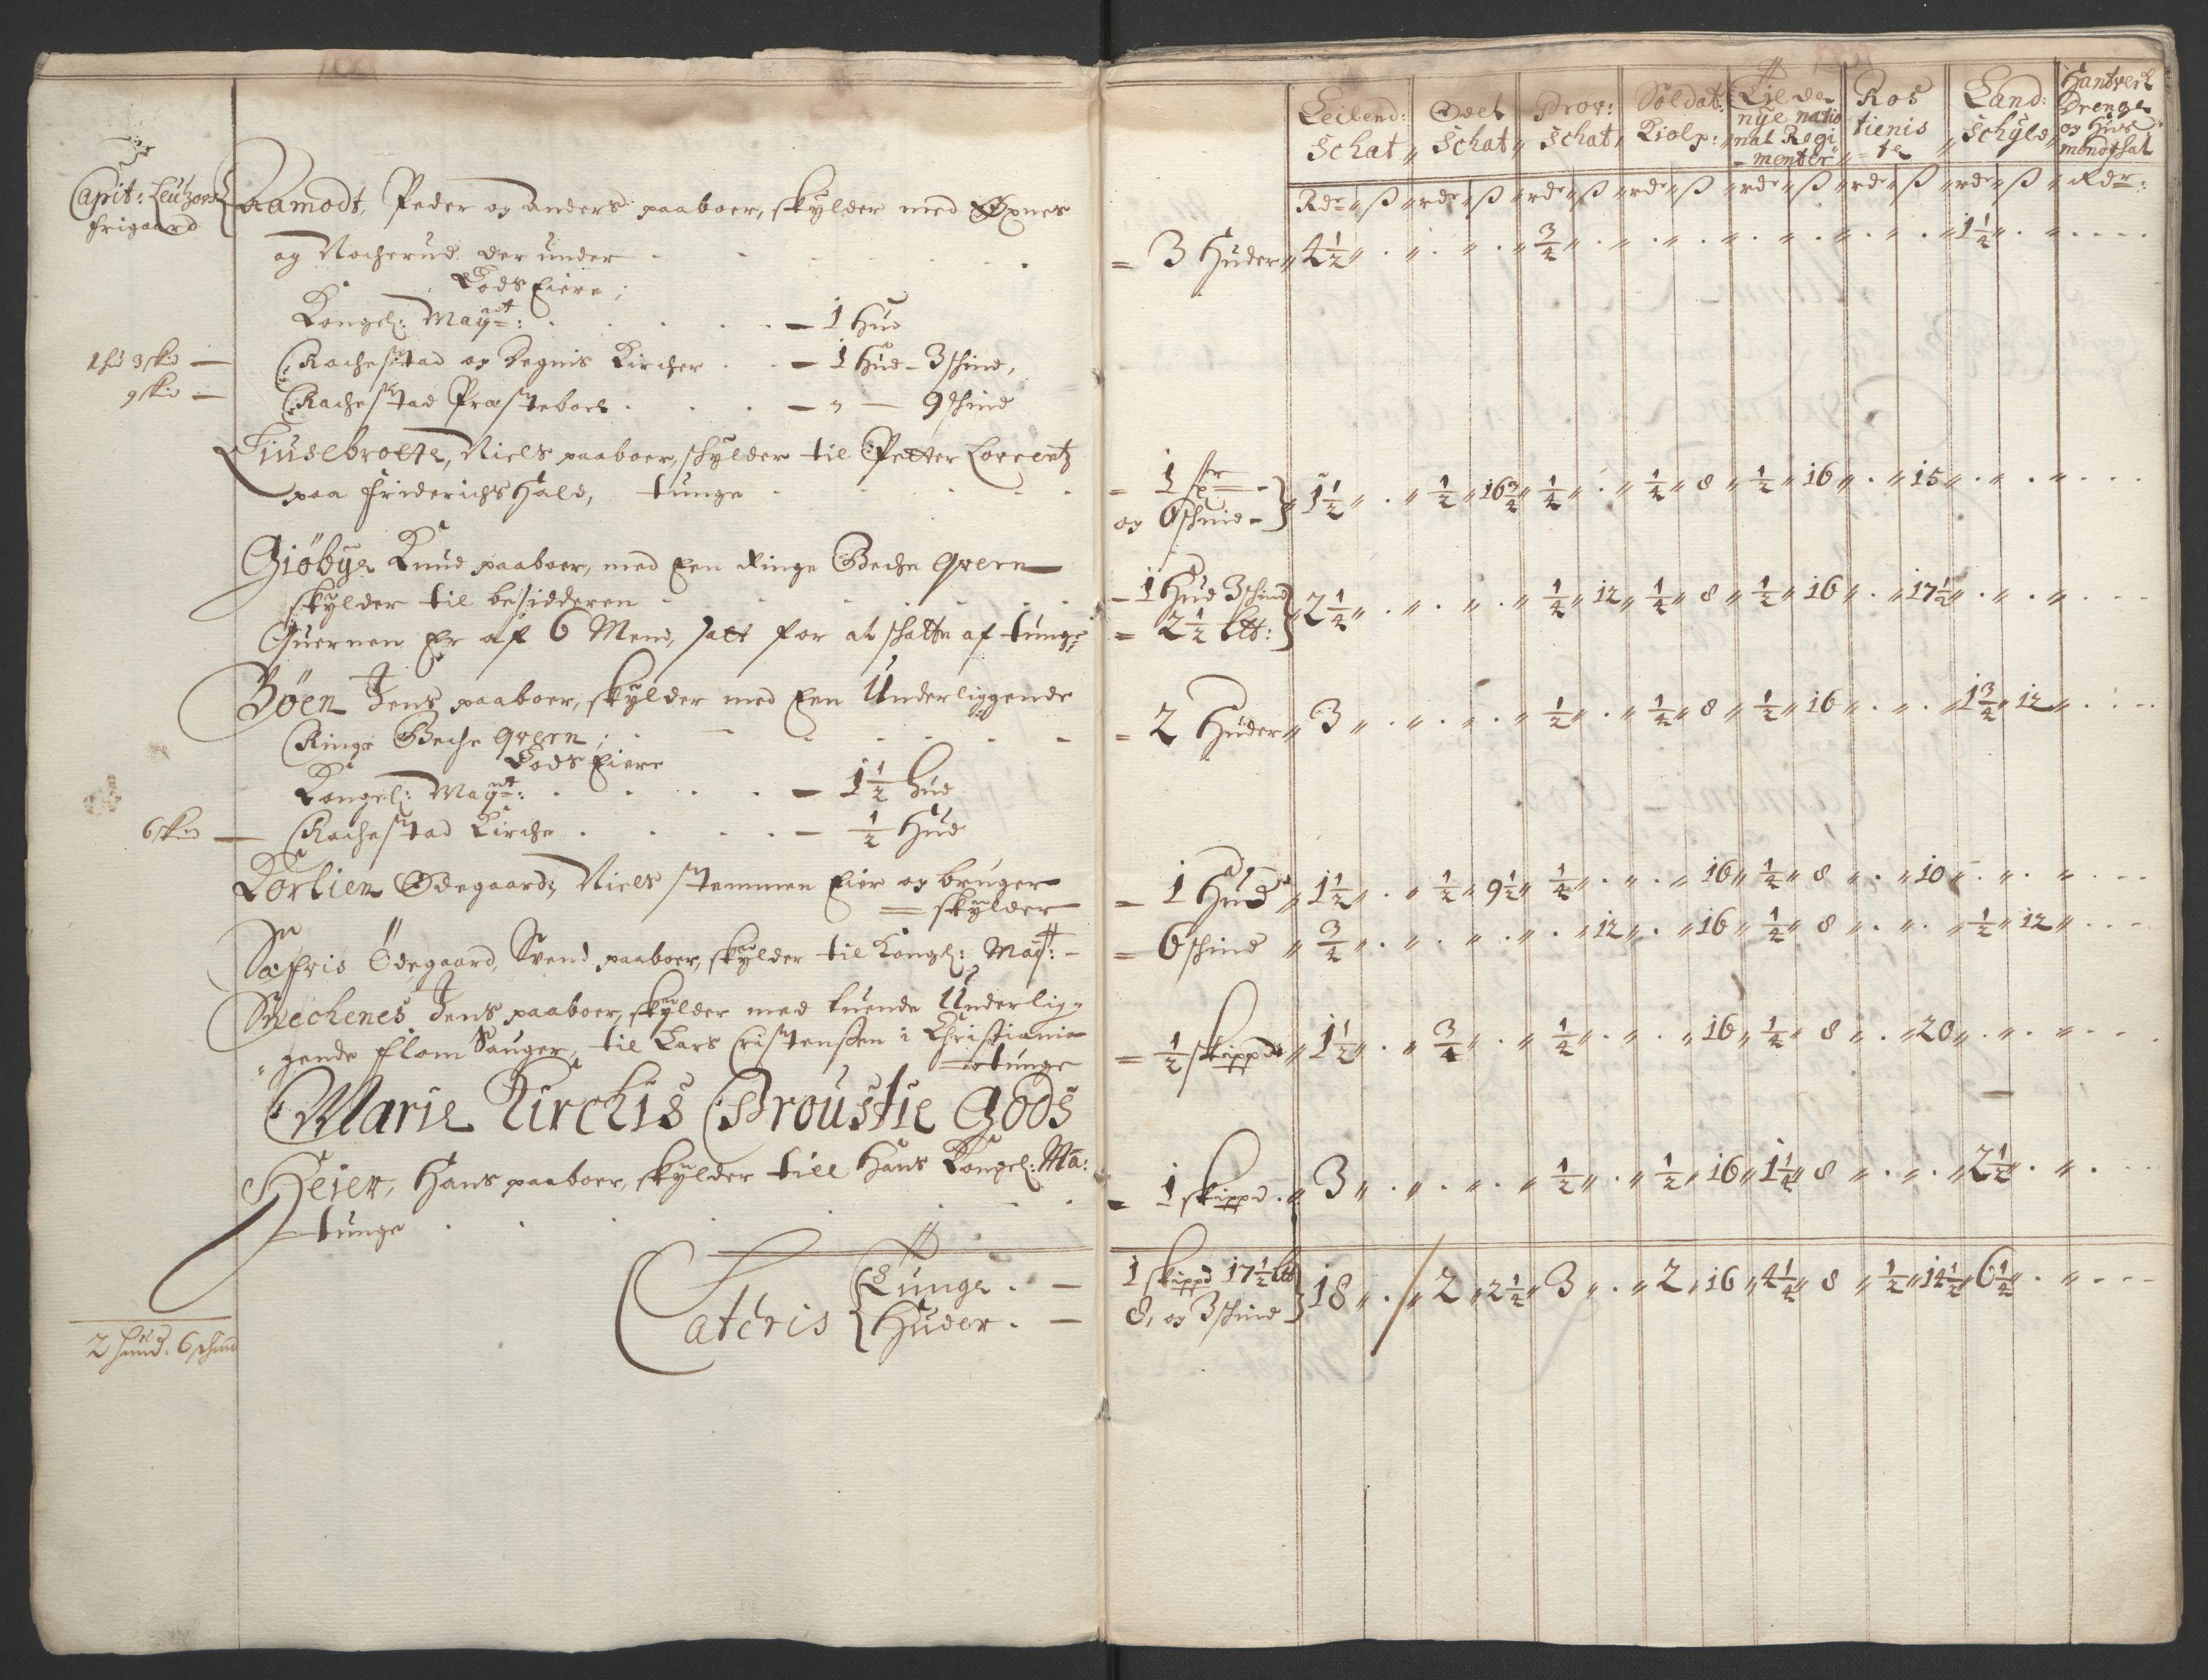 Capit: Leutzous
frigaard
Aamodt, Peder og Anders paaboer, skylder med Øxnes
og Nocherud der under
Gods Eiere;
Kongel: May^tt:
— 1 Hud
1 hud 3 skid — Rachestad og Degnis Kircher — 1 Hud - 3 schind,
9 skid — Rachestad Præsteboel — " — 9 schind
Niels paaboer, schylder til Petter Lorrentz
paa Friderichs Hald, tunge
Giøbye Knud paaboer, med Een Ringe Beche qvern
skylder til besidderen
Quernen Er af 6 Mend, satt for at schatte af tunge
Bøen Jens paaboer, skylder med Een Underliggende
Ringe Beche qvern;
Gods Eiere
Kongel: May^tt: — 1 1/2 hud
6 skid — Rachestad Kirche — 1/2 Hud
Korlien Ødegaard, Niels Stemmen Eier og bruger
skylder
Ødegaard, Svend paaboer, skylder til Kongl: Mayt: -
Snechenes Jens paaboer, skylder med tuende Underlig-
gende flom Sauger, til Lars Cristensen i Christiania
tunge
Marie Kirchis Broustie Gods
Heier, Hans paaboer, skylder till Hans Kongel: Ma:
tunge
Lateris { Tunge . —
Huder . —
2 hud. 6 schind
Leilend: Schat " Odel Schat " Prov: Schat " Soldat: Kiolp: " Til de nye natio nal Regi menter " Ros tienis te " Land: Schyld " Hantverk Drenge og Huus mends schat
Rdr " ß " rdr " ß " rdr " ß " rdr " ß " rdr " ß " rdr " ß " rdr " ß " Rdr:
= 3 Huder " 4 1/2 " . " . " . " 3/4 " . " . " . " . " . " . " . " 1 1/2 " . " . . . .
= 1 og 6 schind - } " 1 1/2 " . " 1/2 " 16 3/4 " 1/4 " . " 1/4 " 8 " 1/2 " 16 " . " 15 " . " . " . . .
- 1 Hud 3 schind
= 2 1/2 ltt: } " 2 1/4 " . " . " . " 1/4 " 12 " 1/4 " 8 " 1/2 " 16 " . " 17 1/2 " . " . " . . .
= 2 Huder " 3 " . " . " . " 1/2 " . " 1/4 " 8 " 1/2 " 16 " . " . " 1 3/4 " 12 " . . . .
= 1 Hud " 1 1/2 " . " 1/2 " 9 1/2 " 1/4 " . " . " 16 " 1/4 " 8 " . " 10 " . " . " . . .
= 6 schind " 3/4 " . " . " . " . " 12 " . " 16 " 1/4 " 8 " . " . " 1/2 " 12 " . . .
= 1/2 skippd " 1 1/2 " . " 3/4 " . " 1/4 " . " . " 16 " 1/4 " 8 " . " 20 " . " . " . . .
= 1 skippd . " 3 " . " . " . " 1/2 " . " 1/2 " 16 " 1 1/4 " 8 " . " . " 2 1/2 " . " . . .
1 skippd 17 1/2 ltt
8, og 3 schind } 18 " . " 2 " 2 1/4 " 3 " . " 2 " 16 " 4 1/4 " 8 " 1/2 " 14 1/2 " 6 1/2 " . " . . .